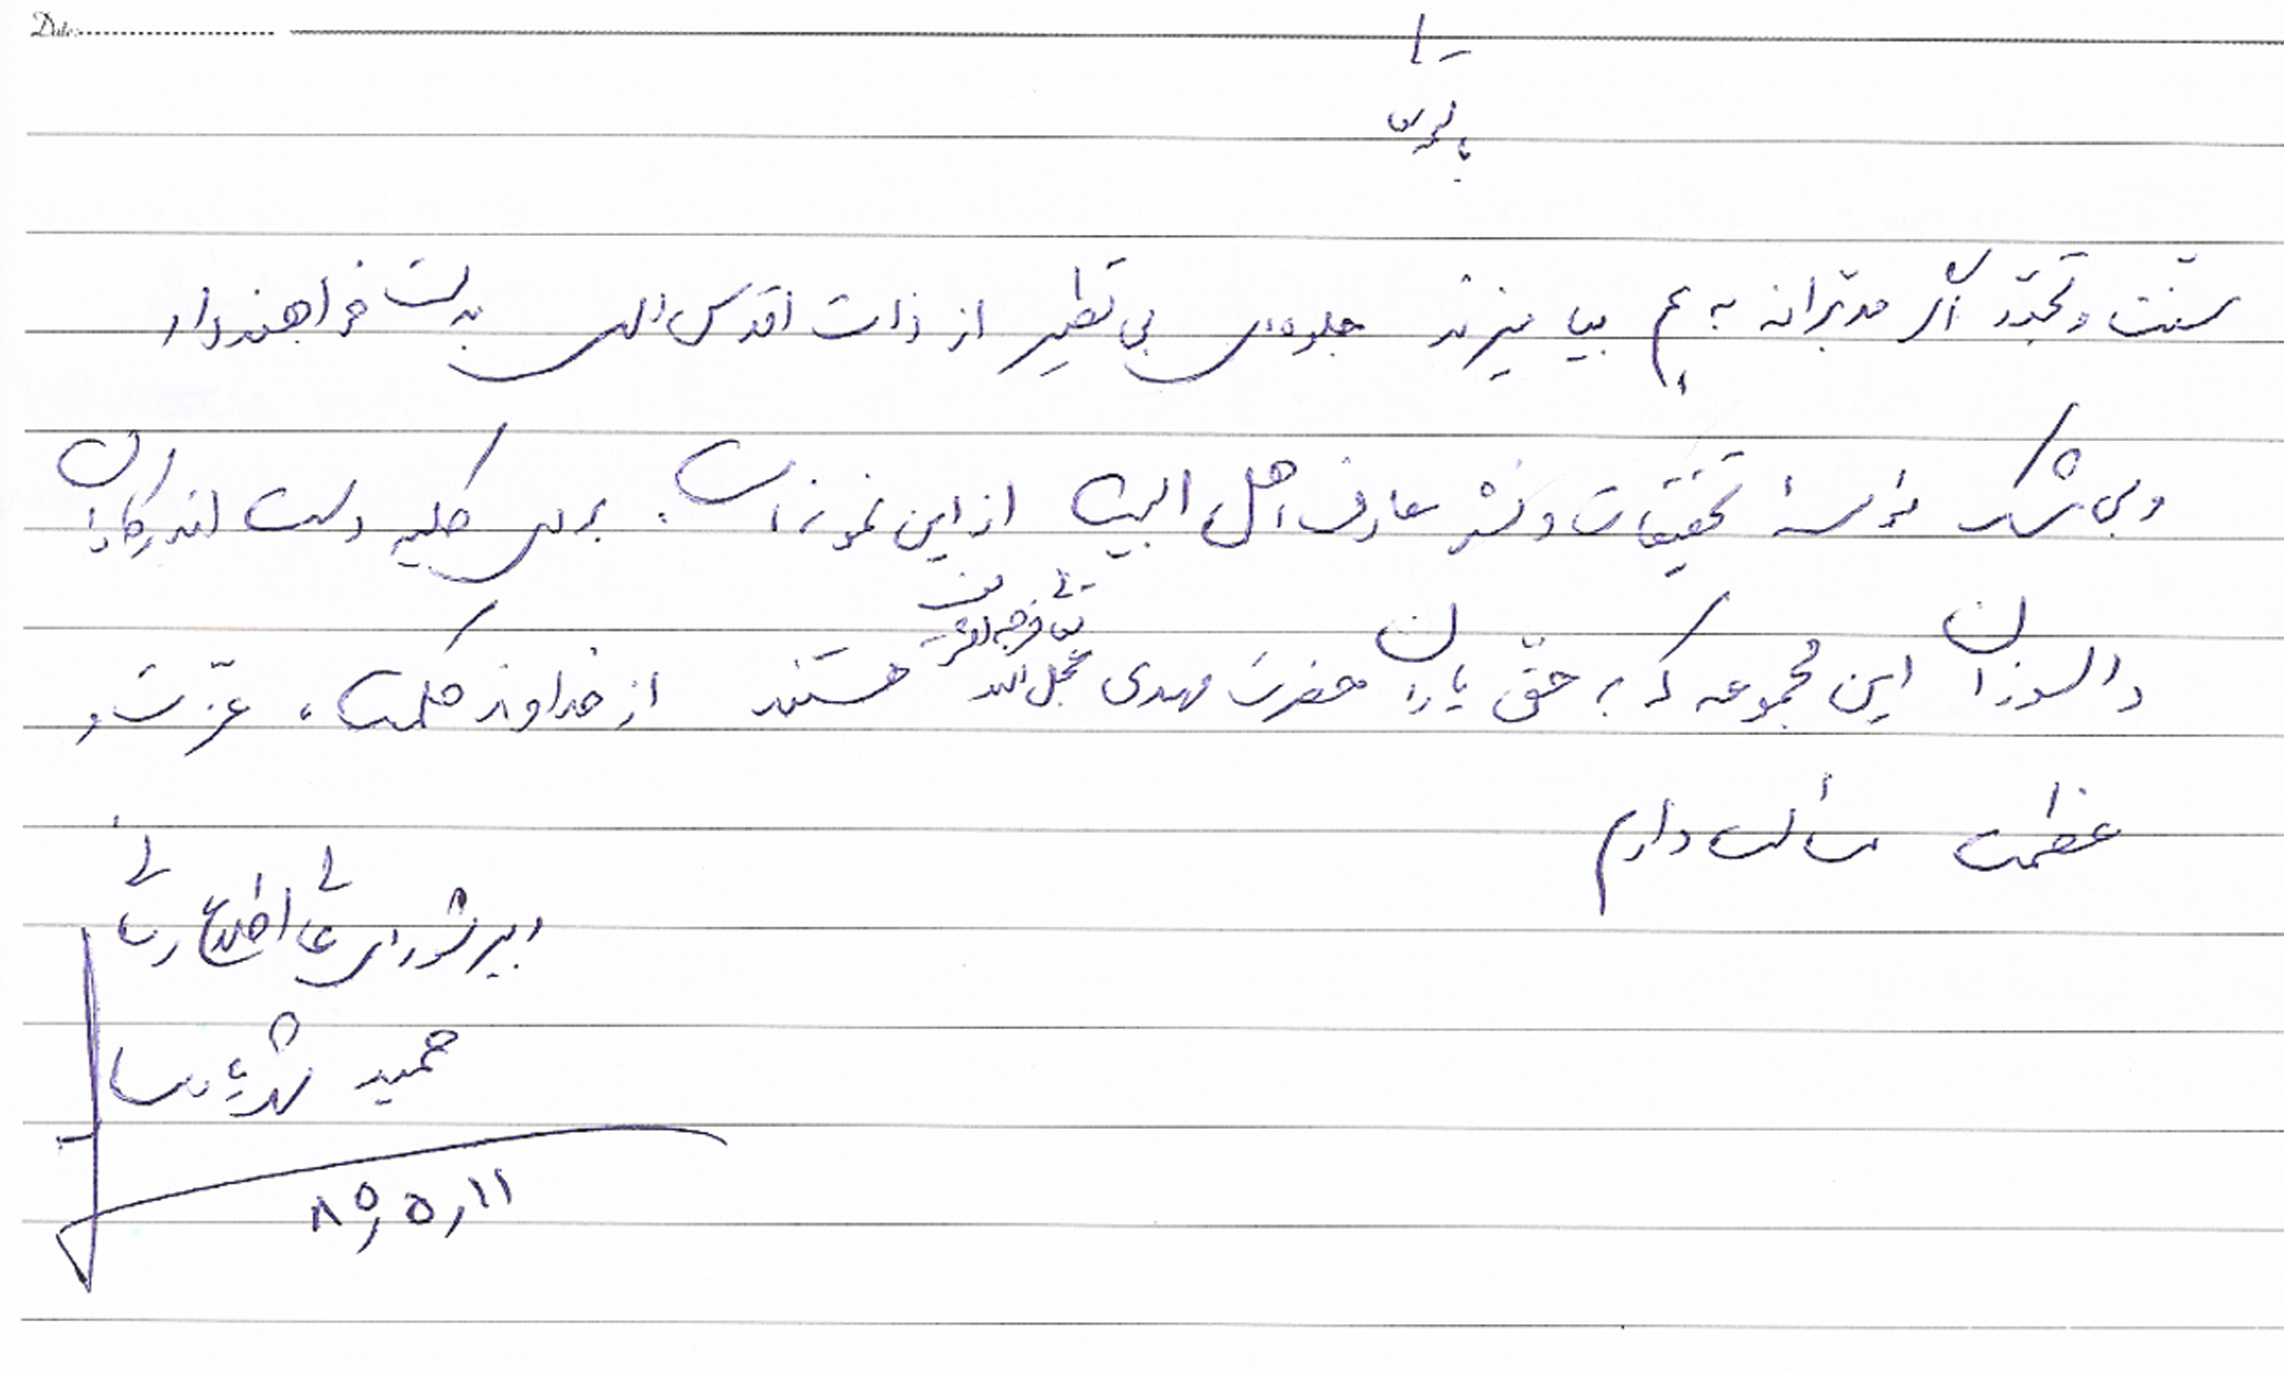 Date:
سنّت و تجدّد اگر مدبّرانه به هم بیامیزند جلوه‌ای بی‌نظیر از ذات اقدس الهی بدست خواهند داد
و بی شک مؤسسهٔ تحقیقات و نشر معارف اهل البیت از این نمونه است. برای کلیه دست اندرکاران
دلسوزان این مجموعه که به حقّ یاران حضرت مهدی عجل الله تعالی فرجه الشریف هستند از خداوند حکمت، عزّت و
عظمت مسألت دارم
دبیر شورای عالی اطلاع رسانی
حمید شهریاری
۸۵,۵,۱۱